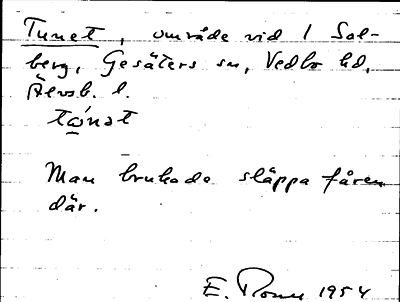 Tunet, område vid 1 Sol-
berg, Gesäters sn, Vedbo hd,
Älvsb. l.
Man brukade släppa fåren
där.
E. 1954